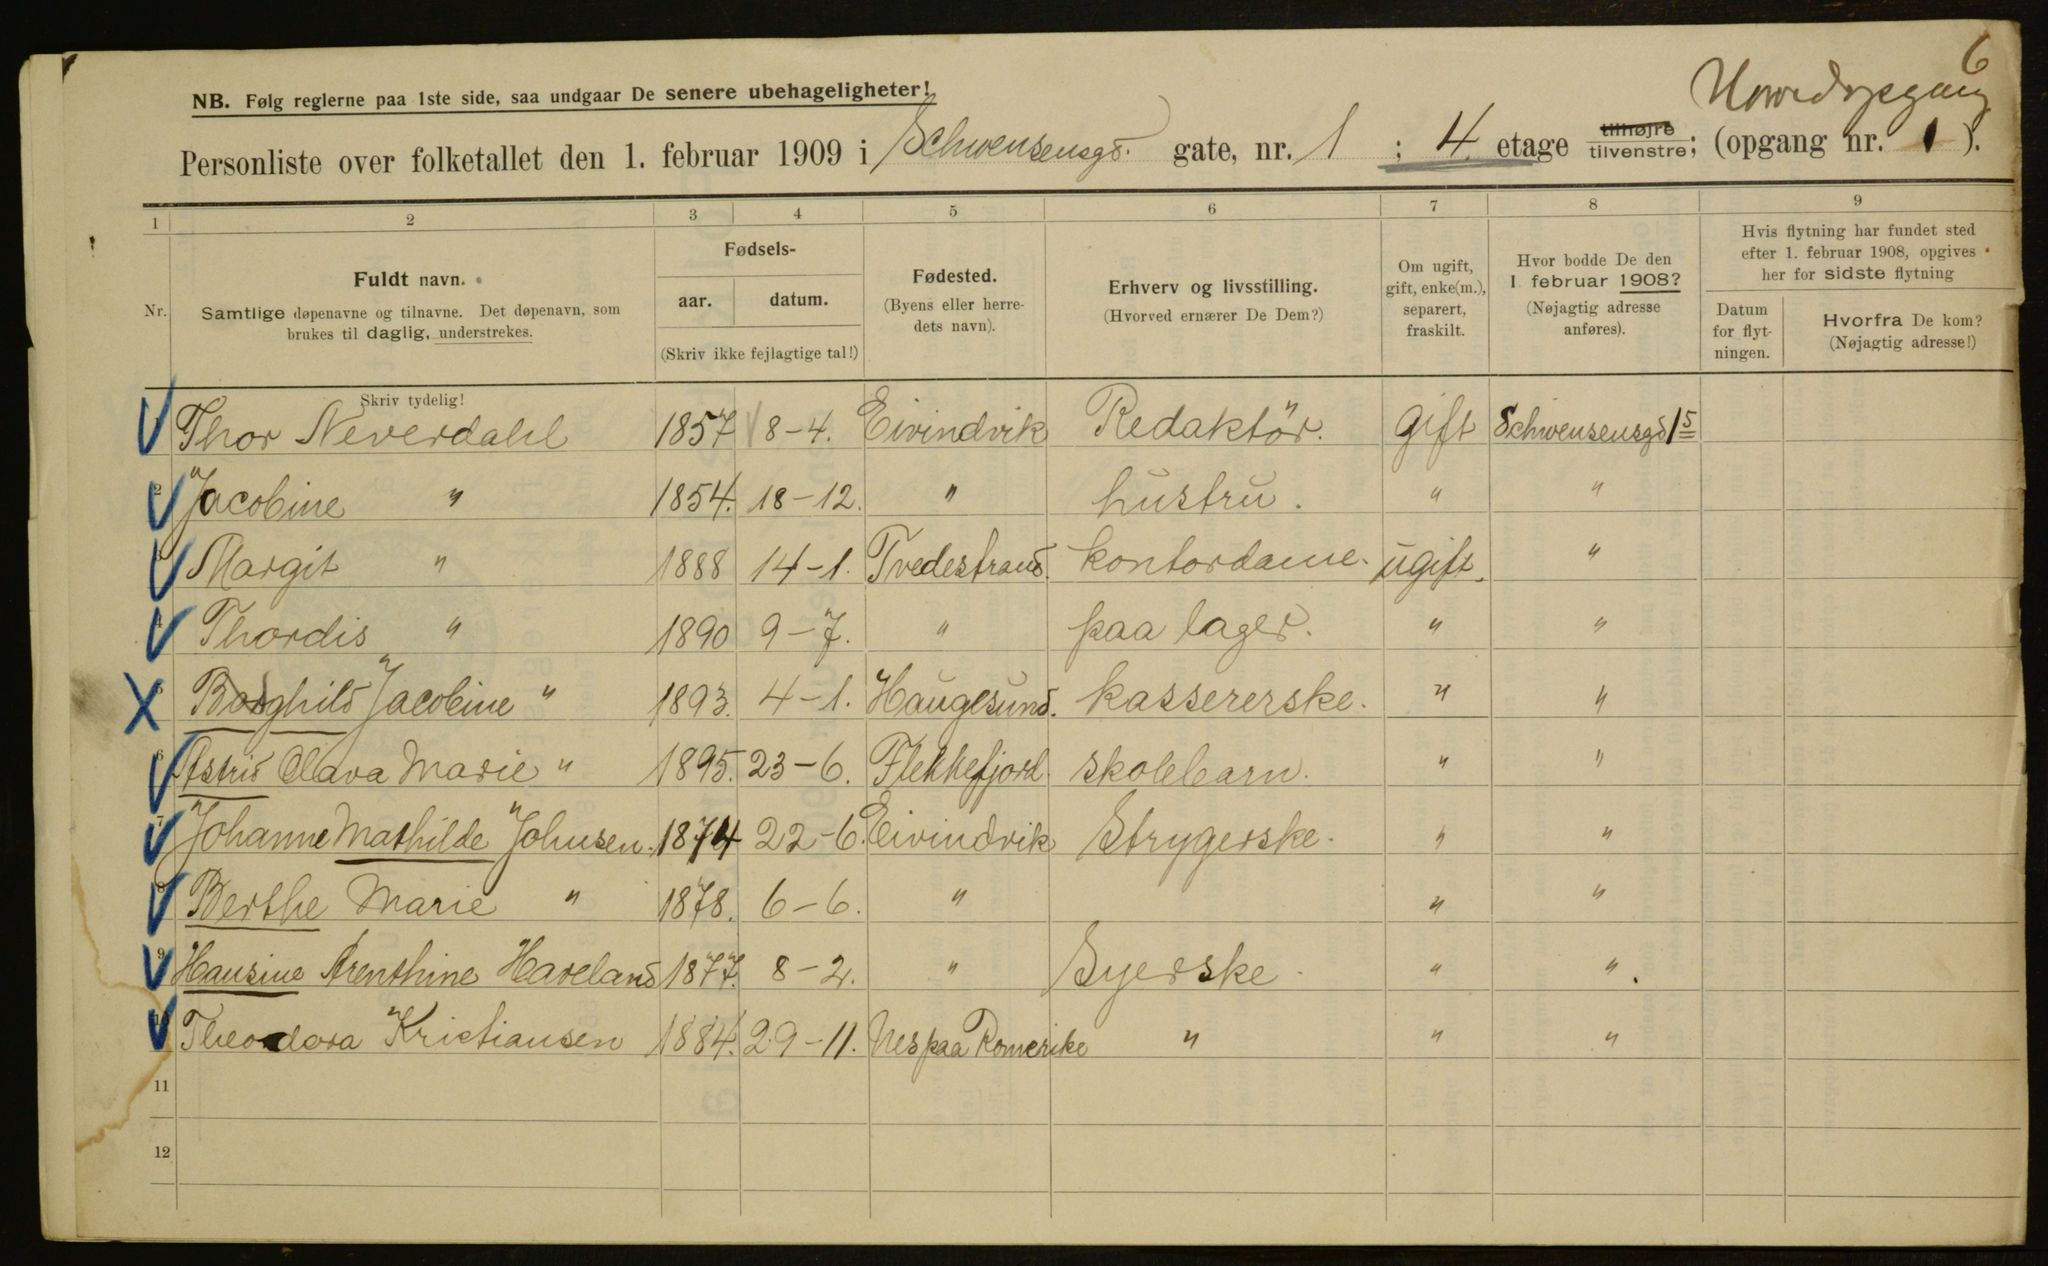 6
Hovedopgang
NB. Følg reglerne paa 1ste side, saa undgaar De senere ubehageligheter!
Personliste over folketallet den 1. februar 1909 i Schwensensgd. gate, nr. 1 ; 4 etage tilhøjre tilvenstre; (opgang nr. 1 ).
1 2 3 4 5 6 7 8 9
Nr.
Fuldt navn.
Samtlige døpenavne og tilnavne. Det døpenavn, som
brukes til daglig, understrekes.
Skriv tydelig!
Fødsels-
aar. datum.
(Skriv ikke fejlagtige tal!)
Fødested.
(Byens eller herre-
dets navn).
Erhverv og livsstilling.
(Hvorved ernærer De Dem?)
Om ugift,
gift, enke(m.),
separert,
fraskilt.
Hvor bodde De den
1 februar 1908?
(Nøjagtig adresse
anføres).
Hvis flytning har fundet sted
efter 1. februar 1908, opgives
her for sidste flytning
Datum
for flyt-
ningen.
Hvorfra De kom?
(Nøjagtig adresse!)
Thor Neverdahl 1857 8-4. Eivindvik Redaktör. gift Schwensensgd 15
2 Jacobine " 1854. 18-12. " hustru. " "
3 Margit " 1888 14-1. Tvedestrand. kontordame. ugift. "
4 Thordis " 1890 9-7. " paa lager. " "
5 Borghild Jacobine " 1893. 4-1. Haugesund. kassererske. " "
6 Astrid Olava Marie " 1895. 23-6. Flekkefjord. skolebarn. " "
7 Johanne Mathilde Johnsen. 1874 22-6. Eivindvik Strygerske. " "
8 Berthe Marie " 1878. 6-6. " " "
9 Hansine Arenthine Haveland 1877. 8-2. " Syerske " ".
10 Theodora Kristiansen 1884. 29-11. Nes paa Romerike " " "
11
12